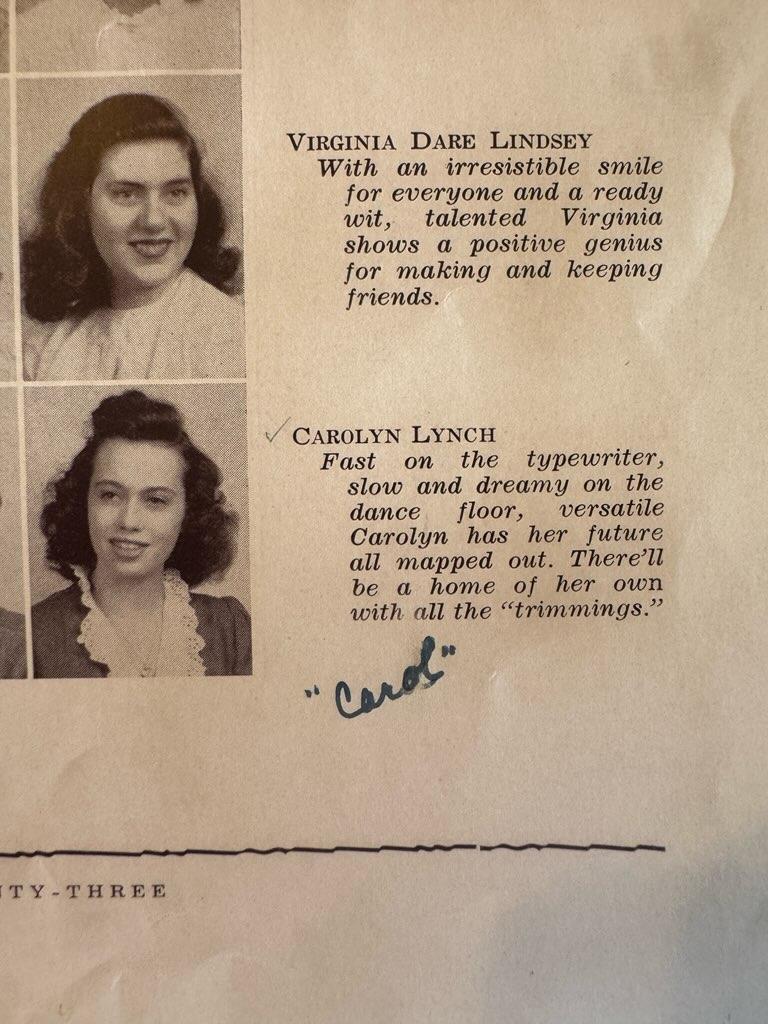 VIRGINIA DARE LINDSEY
With an irresistible smile
for everyone and a ready
wit, talented Virginia
shows a positive genius
for making and keeping
friends.
CAROLYN LYNCH
Fast on the typewriter,
slow and dreamy on the
dance floor, versatile
Carolyn has her future
all mapped out. There'll
be a home of her own
with all the “trimmings.”
"Carol"
TY-THREE